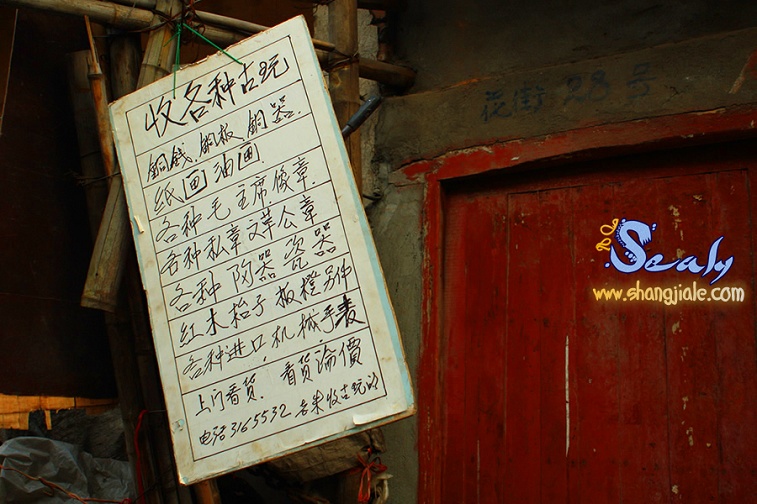 收各种古玩
銅錢.銅板銅器.
纸画油画
各种毛主席像章.
各种私章文革公章
各种陶器瓷器
红木枱子板櫈别艸
各种进口.机械手表
上门看货.看货論價
电话3165532 专来收古玩的
花街28号
Sealy
www.shangjiale.com